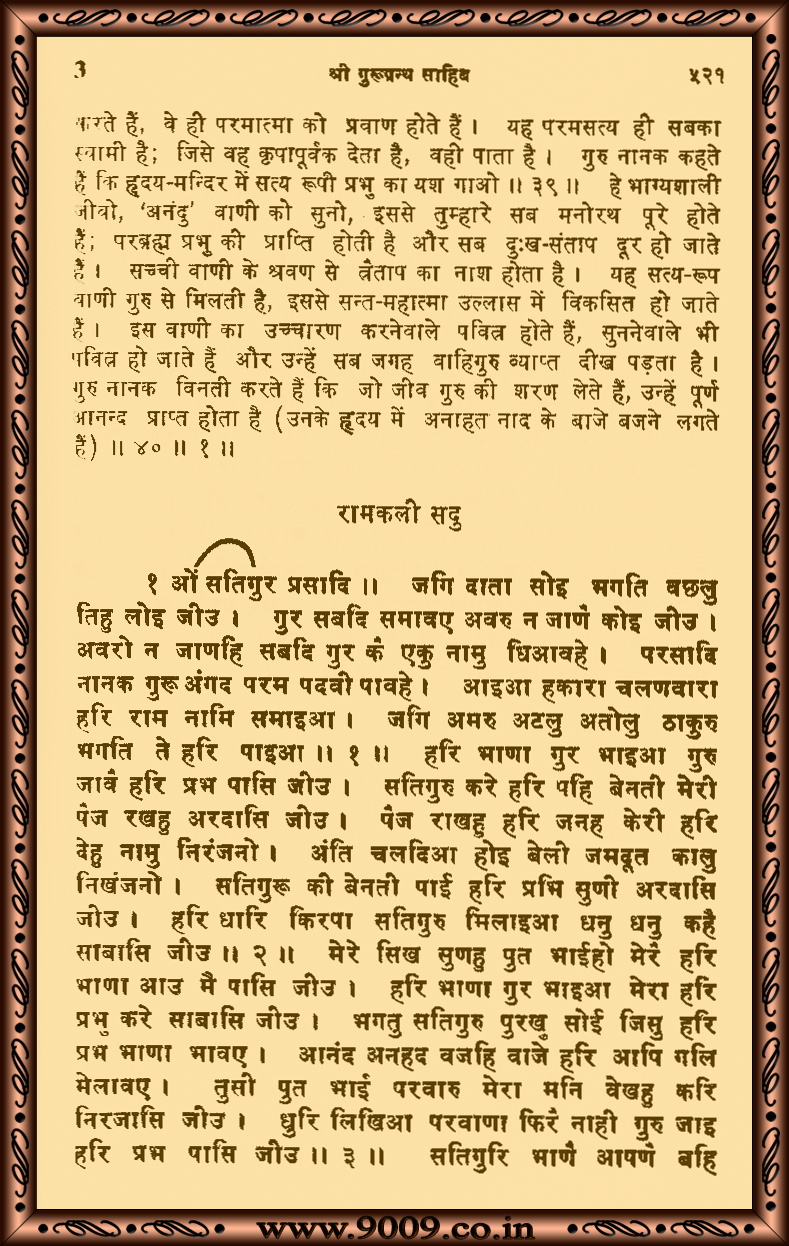 3 श्री गुरूग्रन्थ साहिब ५२१
करते हैं, वे ही परमात्मा को प्रवाण होते हैं । यह परमसत्य ही सबका
स्वामी है; जिसे वह कृपापूर्वक देता है, वही पाता है । गुरु नानक कहते
हैं कि हृदय-मन्दिर में सत्य रूपी प्रभु का यश गाओ ॥ ३९ ॥ हे भाग्यशाली
जीवो, ‘अनंदु’ वाणी को सुनो, इससे तुम्हारे सब मनोरथ पूरे होते
हैं; परब्रह्म प्रभु की प्राप्ति होती है और सब दुःख-संताप दूर हो जाते
हैं । सच्ची वाणी के श्रवण से त्रैताप का नाश होता है । यह सत्य-रूप
वाणी गुरु से मिलती है, इससे सन्त-महात्मा उल्लास में विकसित हो जाते
हैं । इस वाणी का उच्चारण करनेवाले पवित्र होते हैं, सुननेवाले भी
पवित्र हो जाते हैं और उन्हें सब जगह वाहिगुरु व्याप्त दीख पड़ता है ।
गुरु नानक विनती करते हैं कि जो जीव गुरु की शरण लेते हैं, उन्हें पूर्ण
आनन्द प्राप्त होता है (उनके हृदय में अनाहत नाद के बाजे बजने लगते
हैं) ॥ ४० ॥ १ ॥
रामकली सदु
१ ओं सतिगुर प्रसादि ॥ जगि दाता सोइ भगति वछलु
तिहु लोइ जीउ । गुर सबदि समावए अवरु न जाणै कोइ जीउ ।
अवरो न जाणहि सबदि गुर कै एकु नामु धिआवहे । परसादि
नानक गुरू अंगद परम पदवी पावहे । आइआ हकारा चलणवारा
हरि राम नामि समाइआ । जगि अमरु अटलु अतोलु ठाकुरु
भगति ते हरि पाइआ ॥ १ ॥ हरि भाणा गुर भाइआ गुरु
जावै हरि प्रभ पासि जीउ । सतिगुरु करे हरि पहि बेनती मेरी
पैज रखहु अरदासि जीउ । पैज राखहु हरि जनह केरी हरि
देहु नामु निरंजनो । अंति चलदिआ होइ बेली जमदूत कालु
निखंजनो । सतिगुरू की बेनती पाई हरि प्रभि सुणी अरदासि
जीउ । हरि धारि किरपा सतिगुरु मिलाइआ धनु धनु कहै
साबासि जीउ ॥ २ ॥ मेरे सिख सुणहु पुत भाईहो मेरै हरि
भाणा आउ मै पासि जीउ । हरि भाणा गुर भाइआ मेरा हरि
प्रभु करे साबासि जीउ । भगतु सतिगुरु पुरखु सोई जिसु हरि
प्रभ भाणा भावए । आनंद अनहद वजहि वाजे हरि आपि गलि
मेलावए । तुसी पुत भाई परवारु मेरा मनि वेखहु करि
निरजासि जीउ । धुरि लिखिआ परवाणा फिरै नाही गुरु जाइ
हरि प्रभ पासि जीउ ॥ ३ ॥ सतिगुरि भाणै आपणै बहि
www.9009.co.in